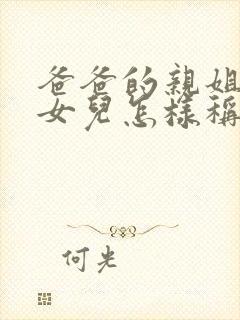 爸爸的親姐
女兒怎樣稱
何光